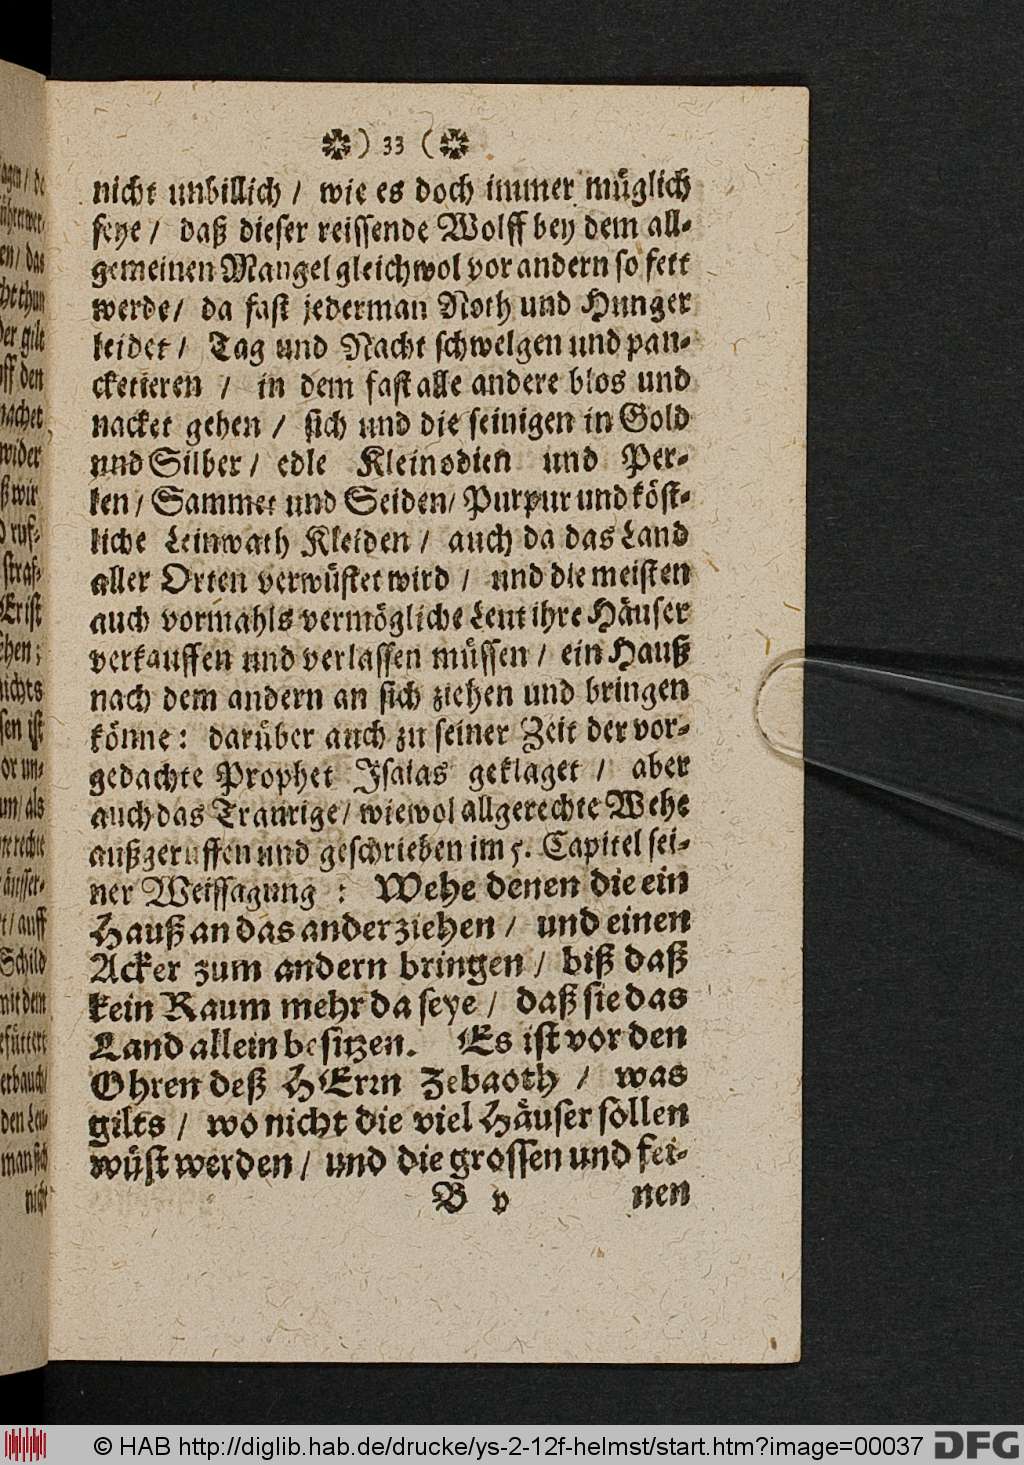 ) 33 (
nicht unbillich / wie es doch immer müglich
seye / daß dieser reissende Wolff bey dem all-
gemeinen Mangel gleichwol vor andern so fett
werde / da fast jederman Noth und Hunger
leidet / Tag und Nacht schwelgen und pan-
cketieren / in dem fast alle andere blos und
nacket gehen / sich und die seinigen in Gold
und Silber / edle Kleinodien und Per-
len / Sammet und Seiden / Purpur und köst-
liche Leinwath Kleiden / auch da das Land
aller Orten verwüstet wird / und die meisten
auch vormahls vermögliche Leut ihre Häuser
verkauffen und verlassen müssen / ein Hauß
nach dem andern an sich ziehen und bringen
könne : darüber auch zu seiner Zeit der vor-
gedachte Prophet Isaias geklaget / aber
auch das Traurige / wiewol allgerechte Wehe
außgeruffen und geschrieben im 5. Capitel sei-
ner Weissagung : Wehe denen die ein
Hauß an das ander ziehen / und einen
Acker zum andern bringen / biß daß
kein Raum mehr da seye / daß sie das
Land allein besitzen. Es ist vor den
Ohren deß HErrn Zebaoth / was
gilts / wo nicht die viel Häuser sollen
wüst werden / und die grossen und fei-
B v nen
© HAB http://diglib.hab.de/drucke/ys-2-12f-helmst/start.htm?image=00037 DFG